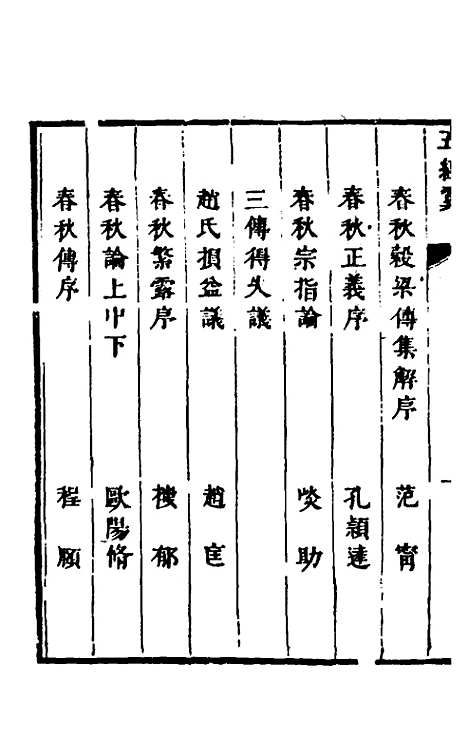 五經翼
春秋穀梁傳集解序 范甯
春秋正義序 孔穎達
春秋宗指論 啖助
三傳得失議
趙氏損益議 趙匡
春秋繁露序 樓郁
春秋論上中下 歐陽脩
春秋傳序 程頤